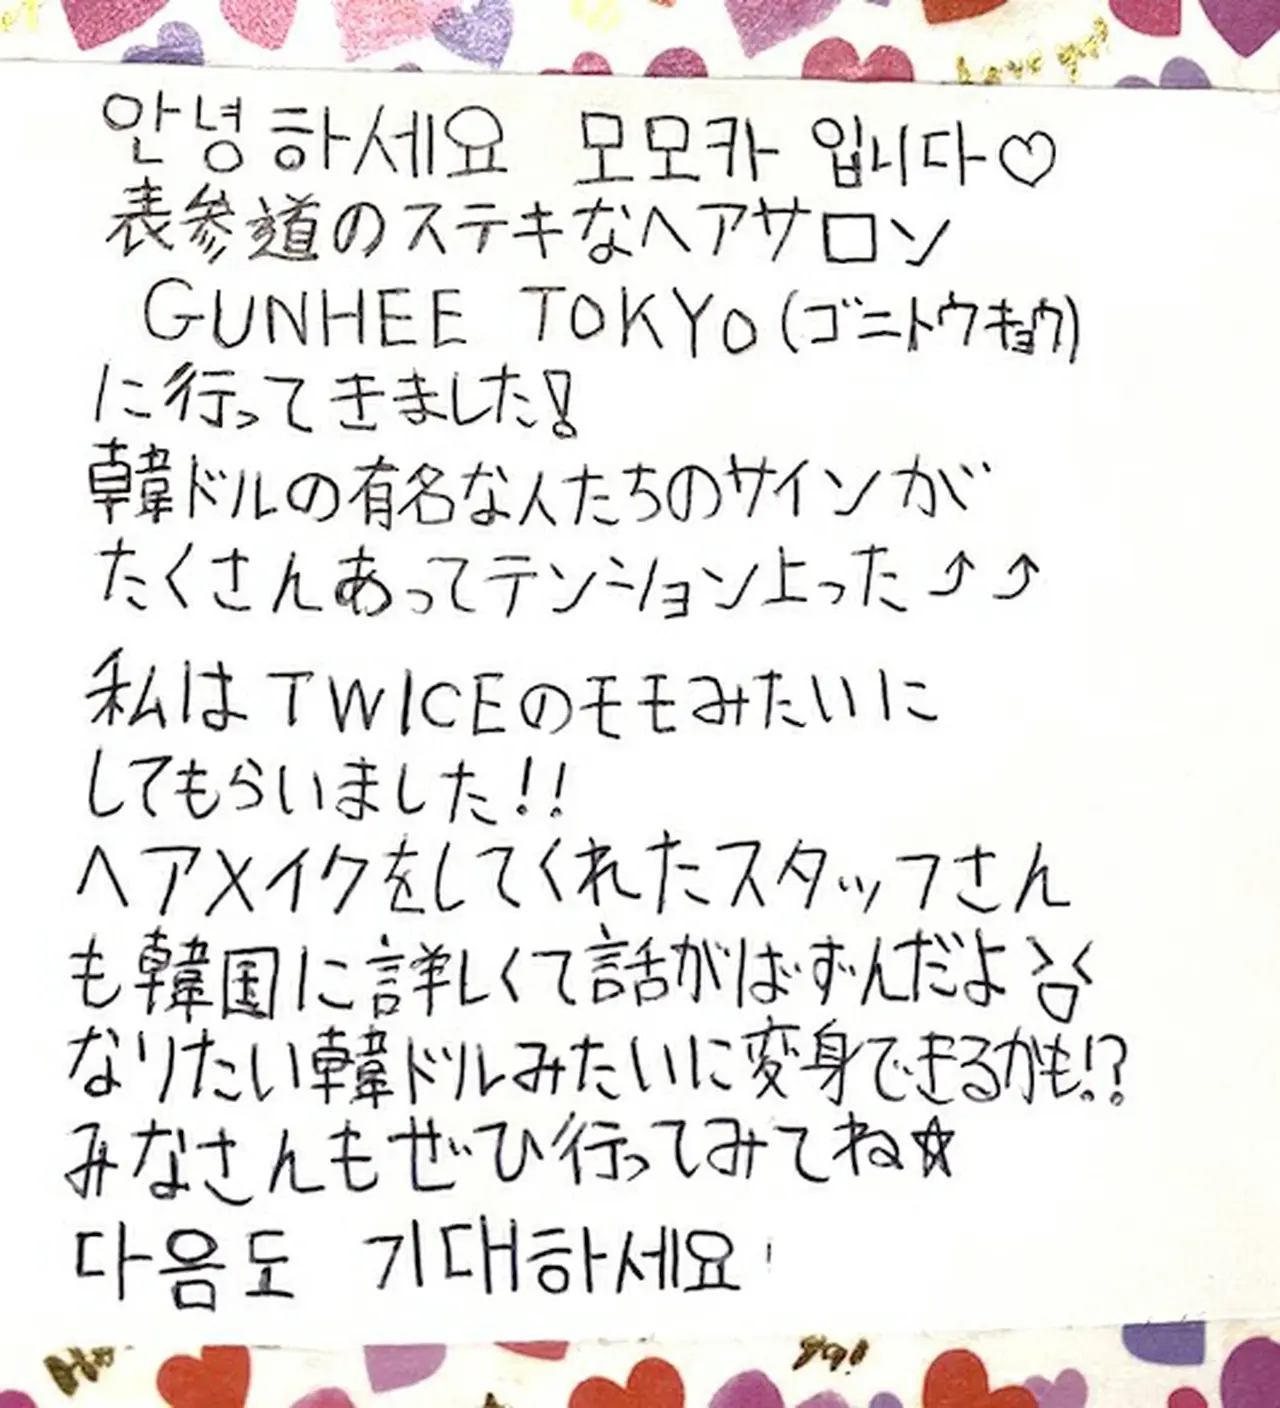 love you!
안녕하세요 모모카 입니다♡
表参道のステキなヘアサロン
GUNHEE TOKYO(ゴニトウキョウ)
に行ってきました!
韓ドルの有名な人たちのサインが
たくさんあってテンション上った⤴⤴
私はTWICEのモモみたいに
してもらいました!!
ヘアメイクをしてくれたスタッフさん
も韓国に詳しくて話がはずんだよ
なりたい韓ドルみたいに変身できるかも!?
みなさんもぜひ行ってみてね☆
다음도 기대하세요